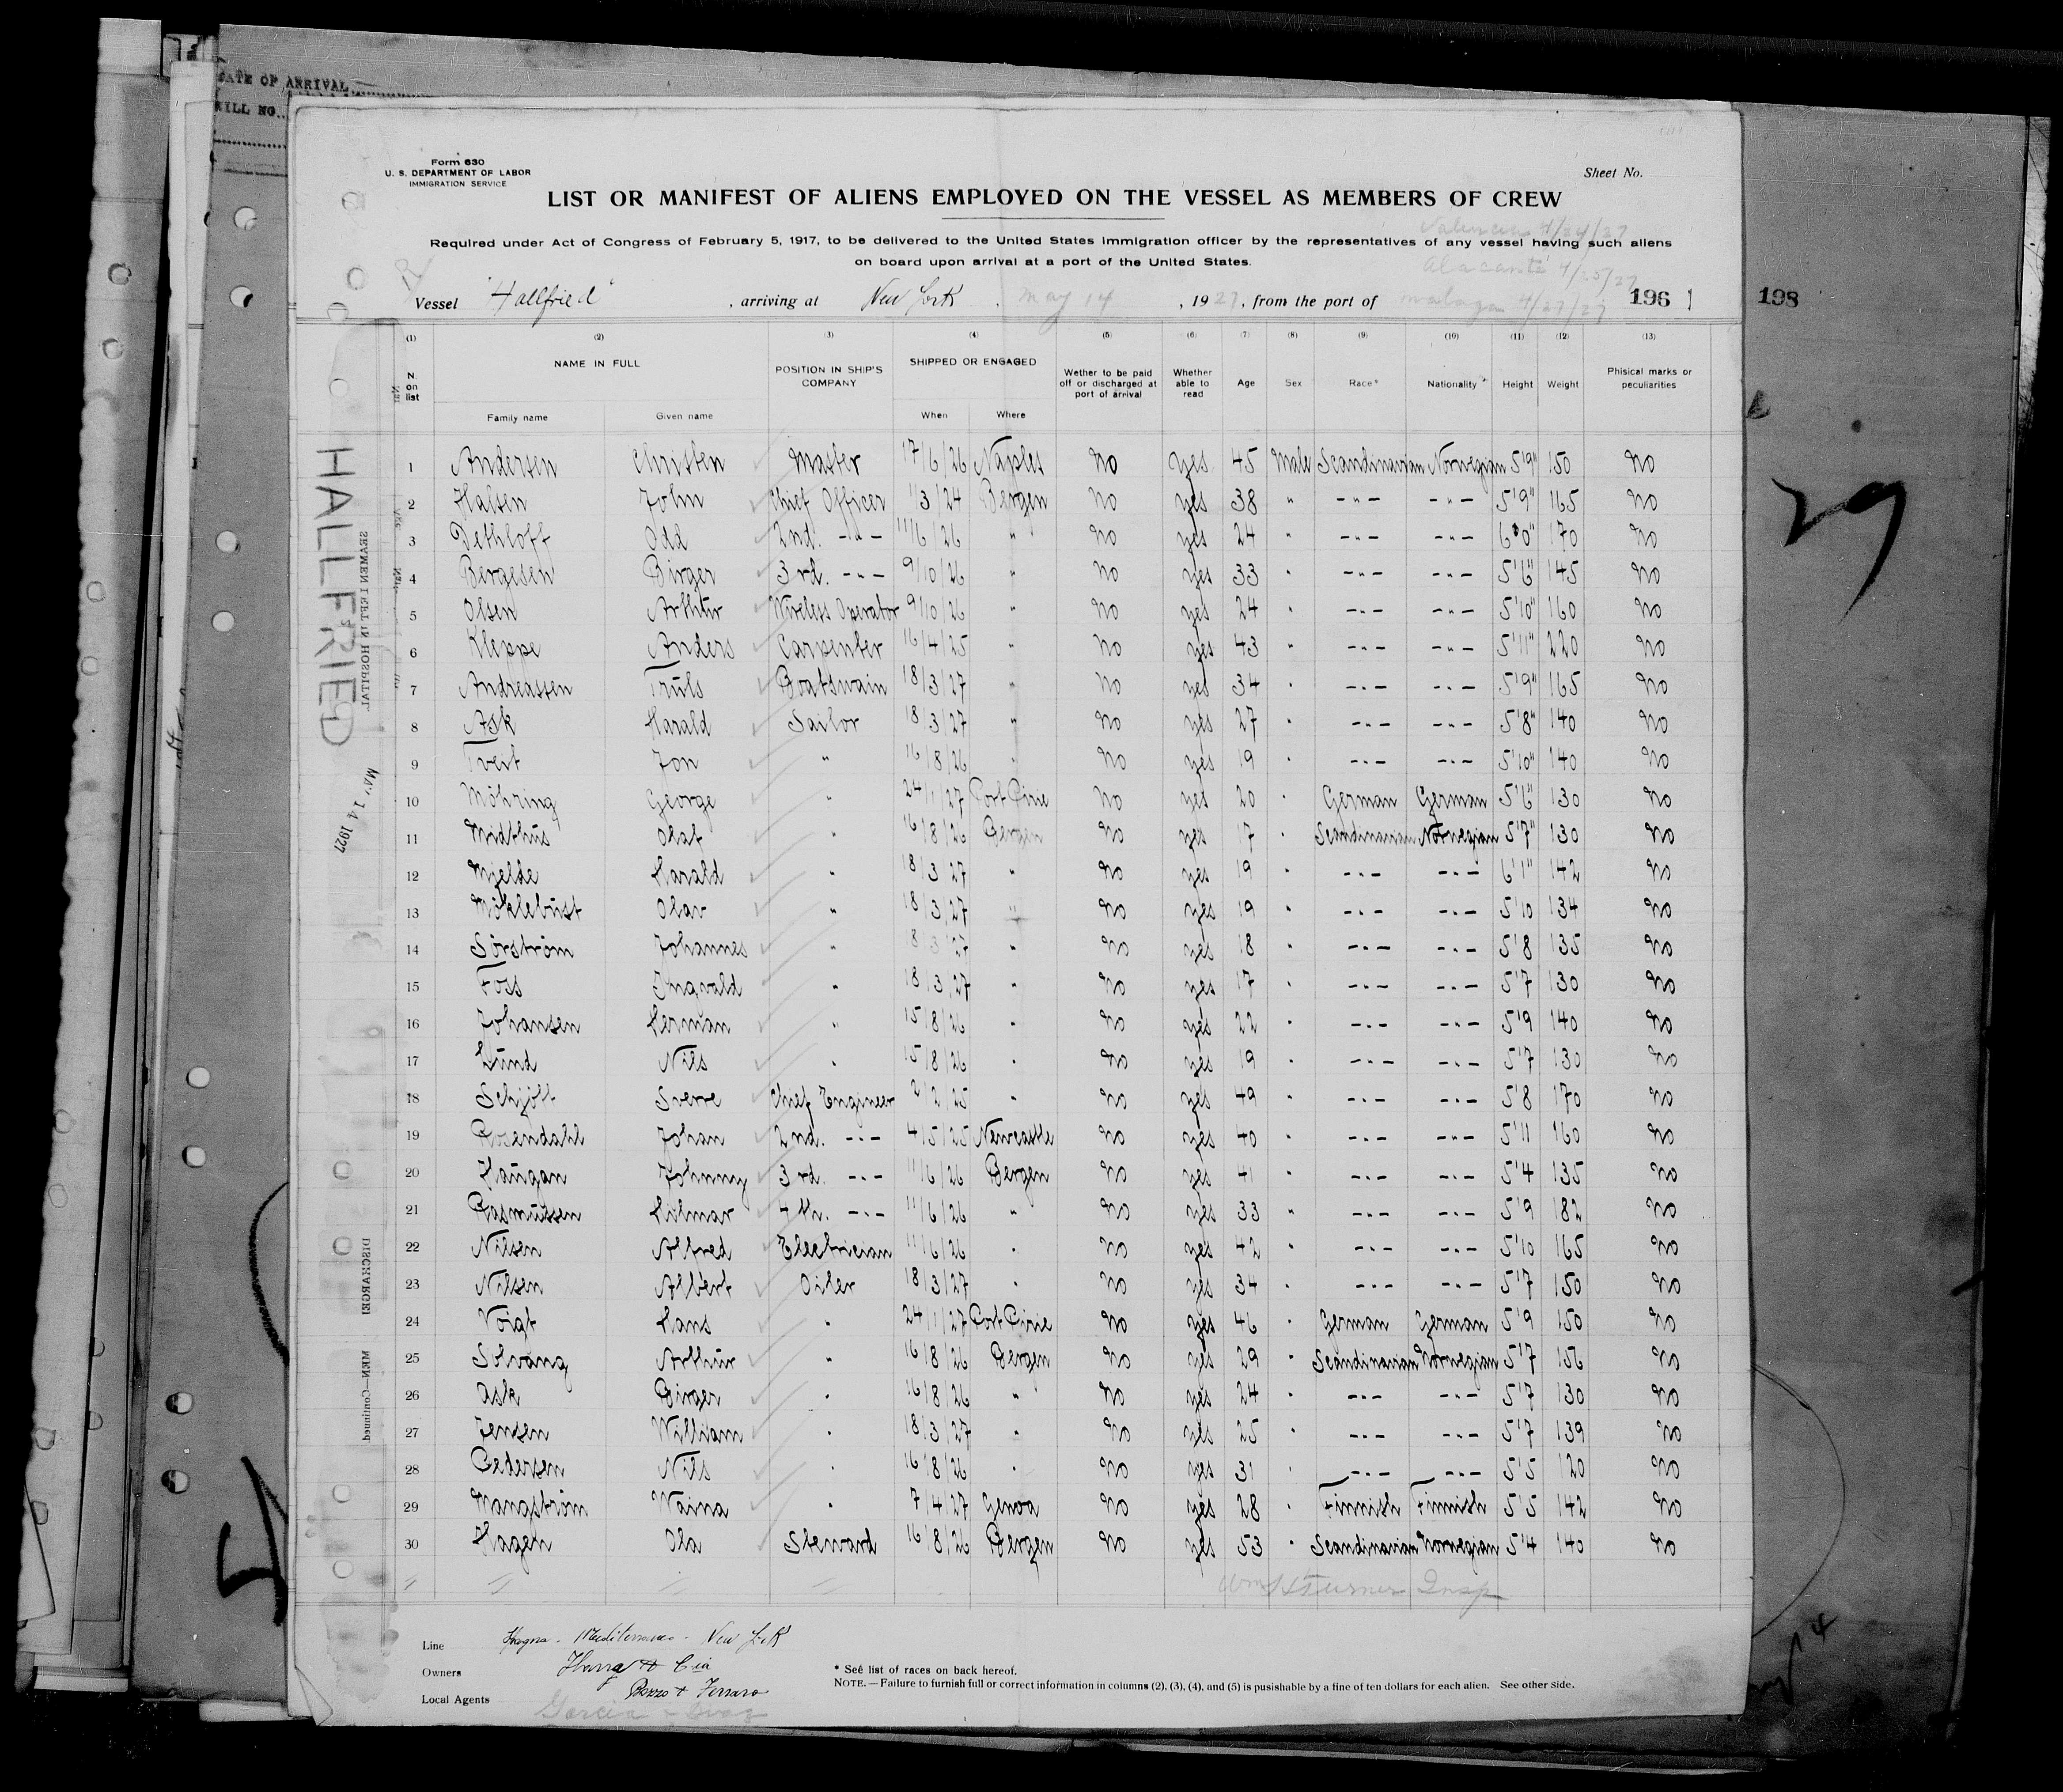 DATE OF ARRIVAL
Form 630
U. S. DEPARTMENT OF LABOR
IMMIGRATION SERVICE
Sheet No.
LIST OR MANIFEST OF ALIENS EMPLOYED ON THE VESSEL AS MEMBERS OF CREW
Valencia 4/24/27
Required under Act of Congress of February 5, 1917, to be delivered to the United States Immigration officer by the representatives of any vessel having such aliens
on board upon arrival at a port of the United States.
Alacante 4/25/27
Vessel "Hallfried", arriving at New York, May 14, 1927, from the port of Malaga 4/27/27 196 1
198
29
HALLFRIED
SEAMEN LEFT IN HOSPITAL
MAY 14 1927
MEN—Continued.
(1) (2) (3) (4) (5) (6) (7) (8) (9) (10) (11) (12) (13)
N. on list NAME IN FULL POSITION IN SHIP'S COMPANY SHIPPED OR ENGAGED Wether to be paid off or discharged at port of arrival Whether able to read Age Sex Race* Nationality* Height Weight Phisical marks or peculiarities
Family name Given name When Where
1 Andersen Christen Master 17/6/26 Naples No yes 45 Male Scandinavian Norwegian 5'9" 150 No
2 Halsen John Chief Officer 1/3/24 Bergen No yes 38 " -"- -"- 5'9" 165 No
3 Dethloff Odd 2nd. -"- 11/6/26 " No yes 24 " -"- -"- 6'0" 170 No
4 Bergesen Birger 3rd. -"- 9/10/26 " No yes 33 " -"- -"- 5'6" 145 No
5 Olsen Arthur Wireless Operator 9/10/26 " No yes 24 " -"- -"- 5'10" 160 No
6 Kleppe Anders Carpenter 16/4/25 " No yes 43 " -"- -"- 5'11" 220 No
7 Andreassen Truls Boatswain 18/3/27 " No yes 34 " -"- -"- 5'9" 165 No
8 Ask Harald Sailor 18/3/27 " No yes 27 " -"- -"- 5'8" 140 No
9 Tveit Jon " 16/8/26 " No yes 19 " -"- -"- 5'10" 140 No
10 Möhring George " 24/1/27 Port Pirie No yes 20 " German German 5'6" 130 No
11 Midthus Olaf " 16/8/26 Bergen No yes 17 " Scandinavian Norwegian 5'7" 130 No
12 Mjelde Harald " 18/3/27 " No yes 19 " -"- -"- 6'1" 142 No
13 Möklebust Olav " 18/3/27 " No yes 19 " -"- -"- 5'10 134 No
14 Sörström Johannes " 18/3/27 " No yes 18 " -"- -"- 5'8 135 No
15 Foss Ingvald " 18/3/27 " No yes 17 " -"- -"- 5'7 130 No
16 Johansen Herman " 15/8/26 " No yes 22 " -"- -"- 5'9 140 No
17 Lund Nils " 15/8/26 " No yes 19 " -"- -"- 5'7 130 No
18 Schjött Sverre Chief Engineer 2/2/25 " No yes 49 " -"- -"- 5'8 170 No
19 Rosendahl Johan 2nd. -"- 4/5/25 Newcastle No yes 40 " -"- -"- 5'11 160 No
20 Haugan Johnny 3rd. -"- 11/6/26 Bergen No yes 41 " -"- -"- 5'4 135 No
21 Rasmussen Hilmar 4th. -"- 11/6/26 " No yes 33 " -"- -"- 5'9 182 No
22 Nilsen Alfred Electrician 11/6/26 " No yes 42 " -"- -"- 5'10 165 No
23 Nilsen Albert Oiler 18/3/27 " No yes 34 " -"- -"- 5'7 150 No
24 Voigt Hans " 24/1/27 Port Pirie No yes 46 " German German 5'9 150 No
25 Solvang Arthur " 16/8/26 Bergen No yes 29 " Scandinavian Norwegian 5'7 156 No
26 Ask Birger " 16/8/26 " No yes 24 " -"- -"- 5'7 130 No
27 Jensen William " 18/3/27 " No yes 25 " -"- -"- 5'7 139 No
28 Pedersen Nils " 16/8/26 " No yes 31 " -"- -"- 5'5 120 No
29 Mangström Waina " 7/4/27 Genoa No yes 28 " Finnish Finnish 5'5 142 No
30 Hagen Ola Steward 16/8/26 Bergen No yes 53 " Scandinavian Norwegian 5'4 140 No
Turner Insp
Line Mediterraneo - New York
Owners Ybarra & Cia
Local Agents Bozzo & Ferraro
Garcia & Diaz
* Seé list of races on back hereof.
NOTE. — Failure to furnish full or correct information in columns (2), (3), (4), and (5) is pusishable by a fine of ten dollars for each alien. See other side.